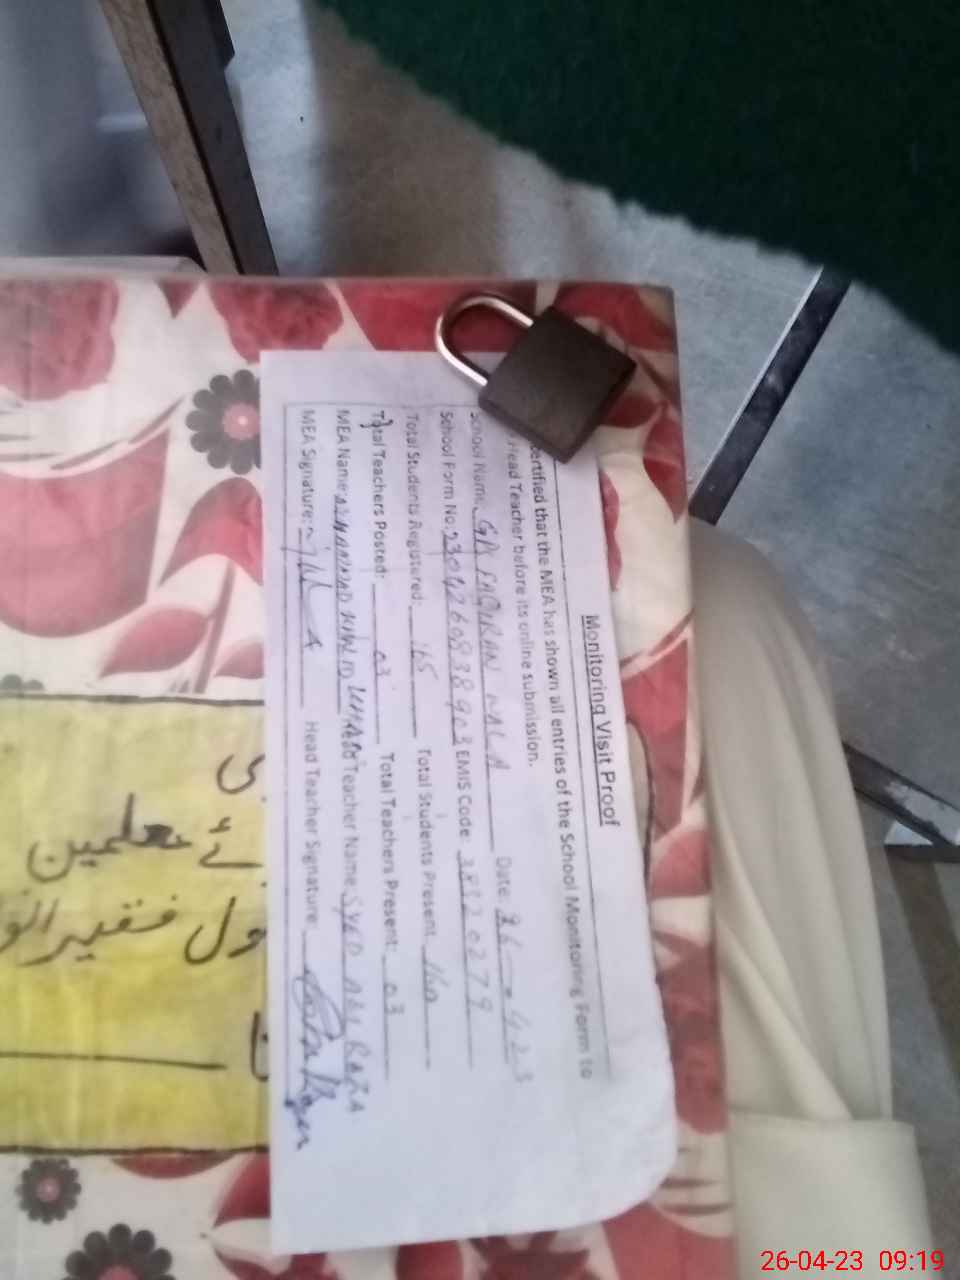 Monitoring Visit Proof
certified that the MEA has shown all entries of the School Monitoring Form to
Head Teacher before its online submission.
School Name FAQIRAN WALA Date: 26-4-23
School Form No: EMIS Code: 38320279
Total Students Registered: 165 Total Students Present 160
Total Teachers Posted: 03 Total Teachers Present: 03
MEA Name: MUHAMMAD Head Teacher Name SYED ALI RAZA
MEA Signature: Head Teacher Signature:
ئے معلمین
ول فقیر انو
26-04-23 09:19